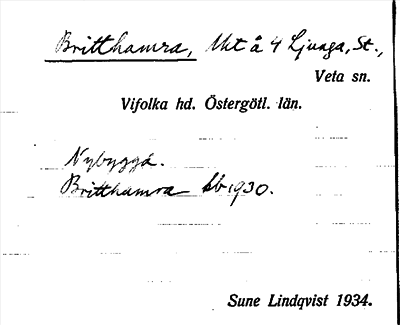 Britthamra, Uht å 4 Ljunga, St.,
Veta sn.
Vifolka hd. Östergötl. län.
Nybygga.
Britthamra Lb 1930.
Sune Lindqvist 1934.